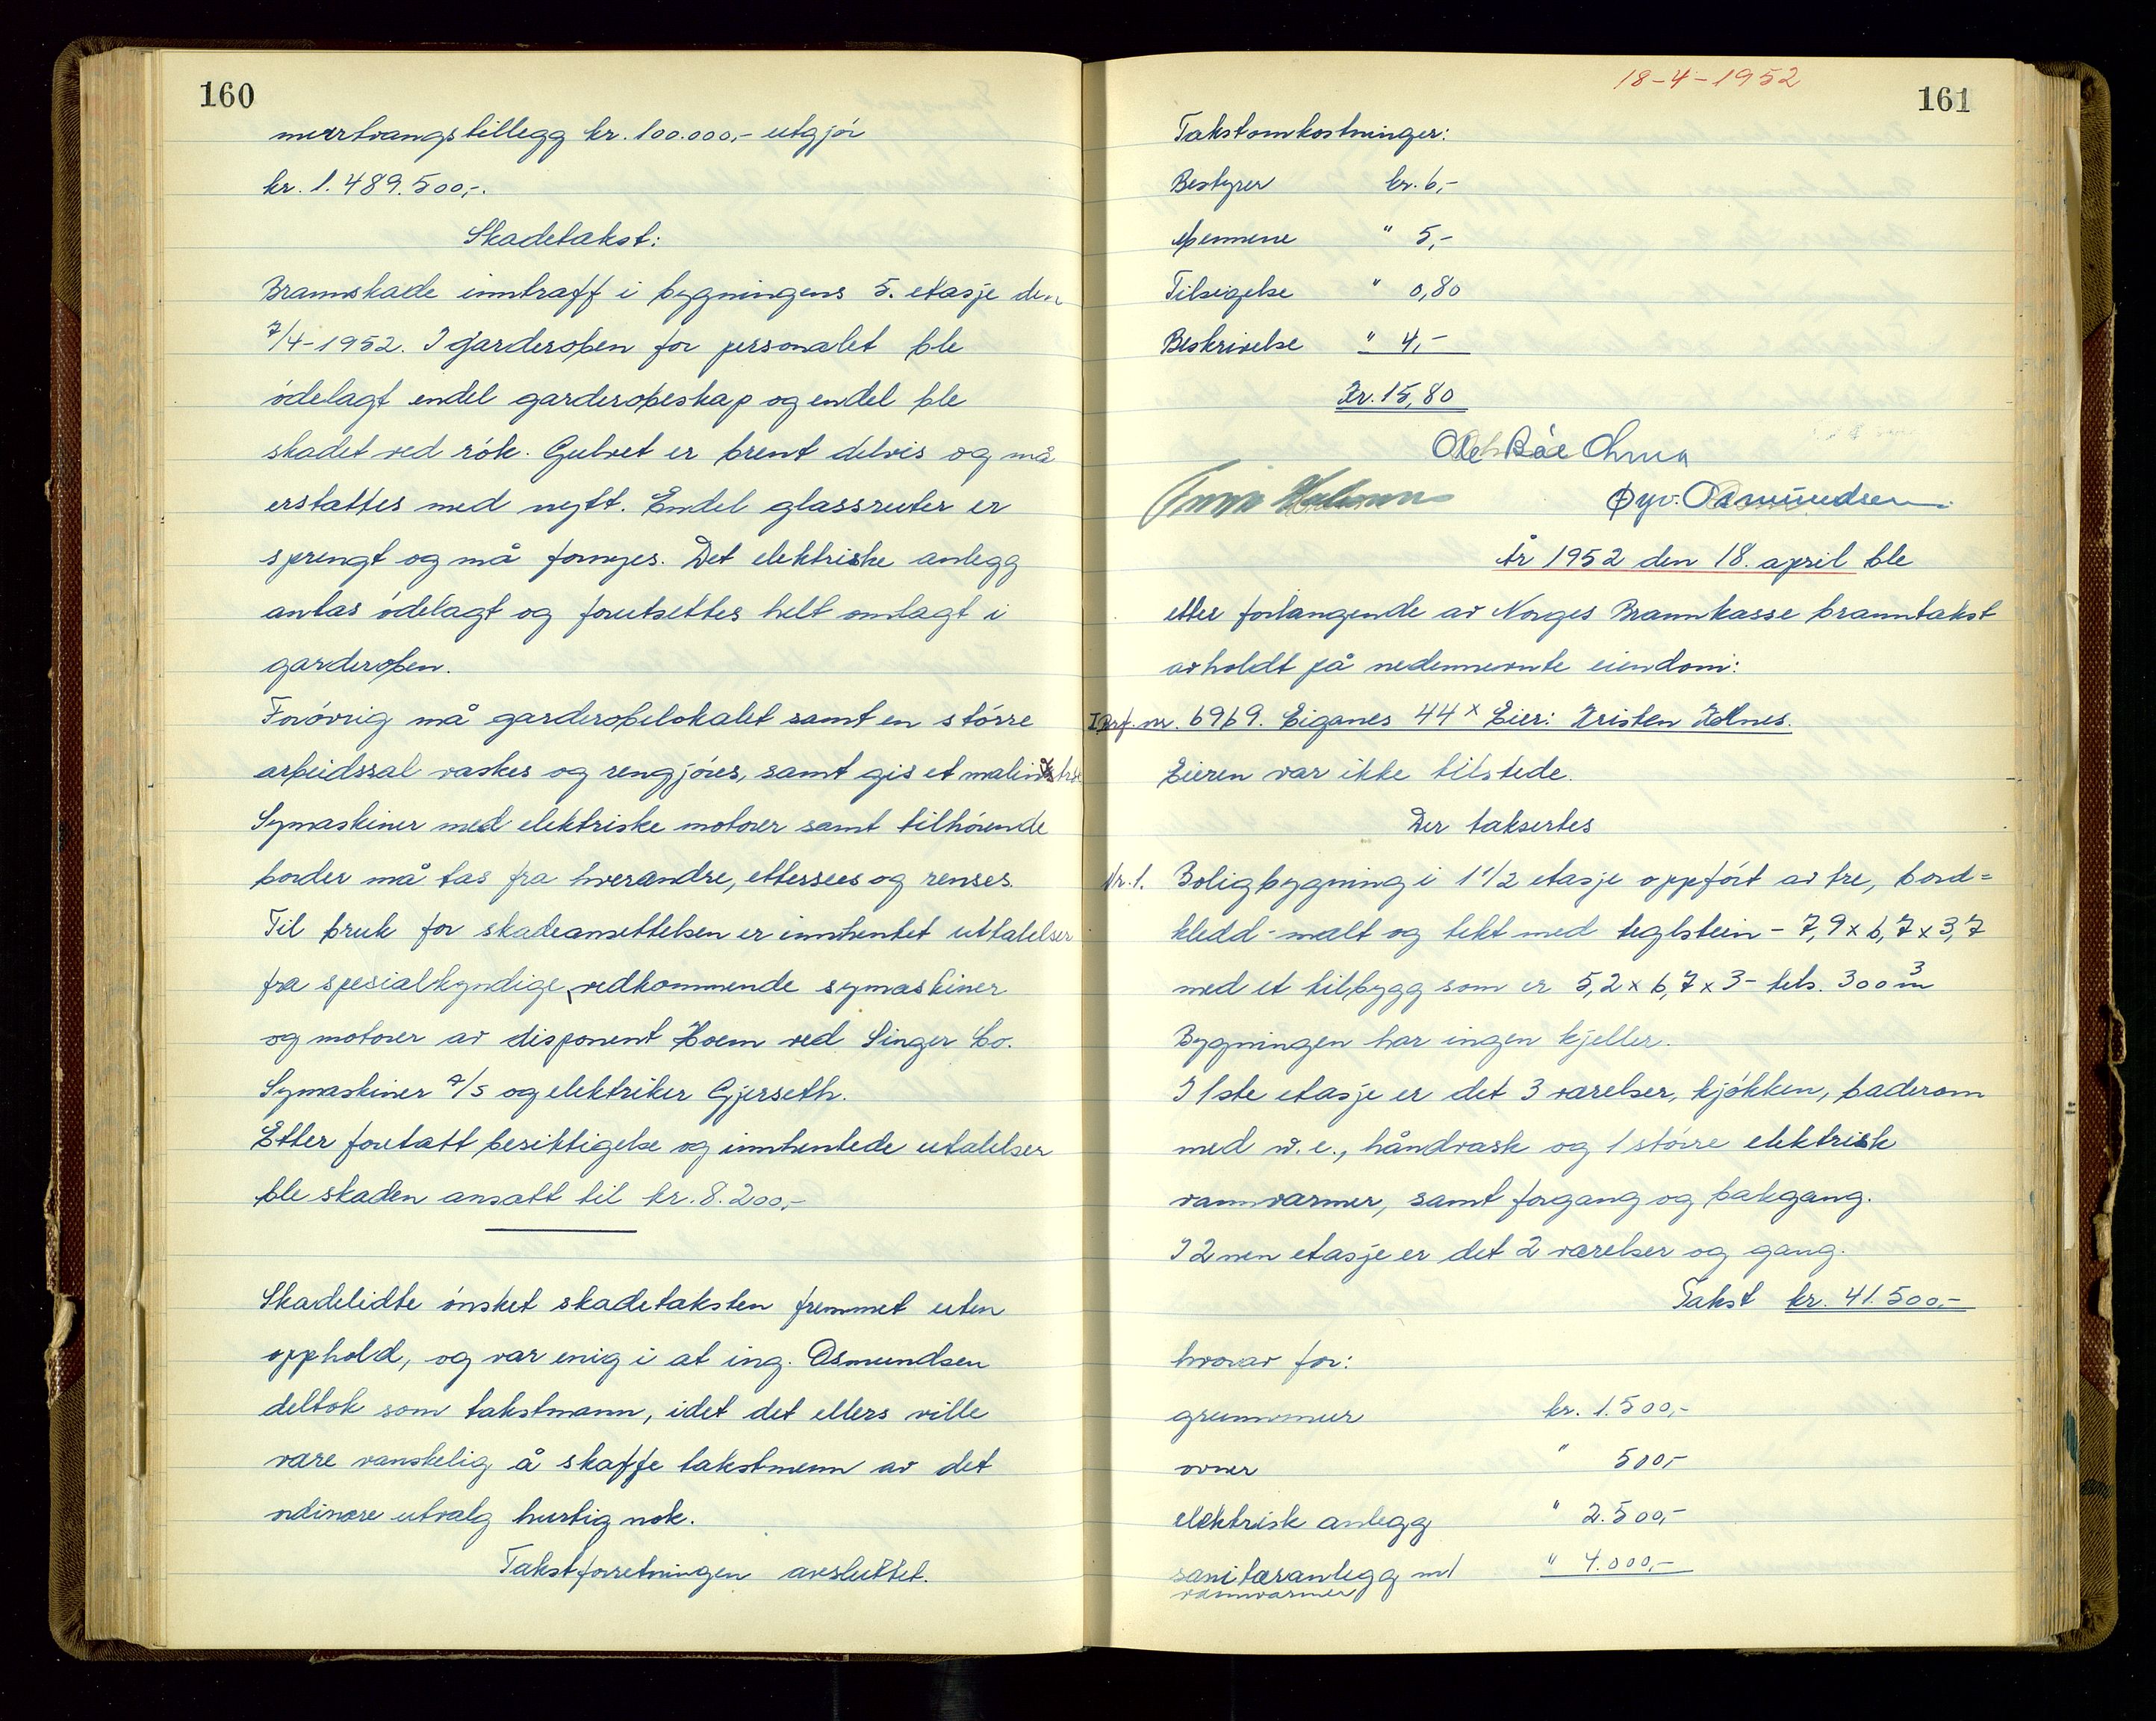 160
murtvangstillegg kr. 100.000,- utgjór
kr. 1.489.500,-.
Skadetakst:
Brannskade inntraff i bygningens 5. etasje den
7/4-1952. I garderoben for personalet ble
ódelagt endel garderobeskap og endel ble
skadet ved rók. Gulvet er brent delvis og må
erstattes med nytt. Endel glassruter er
sprengt og må fornyes. Det elektriske anlegg
antas ódelagt og forutsettes helt omlagt i
garderoben.
Foróvrig må garderobelokalet samt en stórre
arbeidssal vaskes og rengjóres, samt gis et
Symaskiner med elektriske motorer samt tilhórende
border må tas fra hverandre, ettersees og renses.
Til bruk for skadeansettelsen er innhentet uttalelser
fra spesialkyndige, vedkommende symaskiner
og motorer av disponent Hoem ved Singer Co.
Symaskiner A/S og elektriker Gjerseth.
Etter foretatt besiktigelse og innhentede utalelser
ble skaden ansatt til kr. 8.200,-
Skadelidte ónsket skadetaksten fremmet uten
opphold, og var enig i at ing. Osmundsen
deltok som takstmann, idet det ellers ville
være vanskelig å skaffe takstmenn av det
ordinære utvalg hurtig nok.
Takstforretningen avsluttet.
18-4-1952
161
Takstomkostninger:
Bestyrer kr. 6,-
Mennene " 5,-
Tilsigelse " 0,80
Beskrivelse " 4,-
Kr. 15,80
Ole Bóe
Øyv. Osmundsen.
År 1952 den 18. april ble
etter forlangende av Norges Brannkasse branntakst
avholdt på nedennevnte eiendom:
Brf. nr. 6969. Eiganes 44x Eier: Kristen Holnes.
Eieren var ikke tilstede.
Der taksertes
Nr. 1. Boligbygning i 1 1/2 etasje oppfórt av tre, bord=
kledd - malt og tekt med teglstein - 7,9 x 6,7 x 3,7
med et tilbygg som er 5,2 x 6,7 x 3 - tils. 300 m3
Bygningen har ingen kjeller.
I 1ste etasje er det 3 værelser, kjókken, baderom
med w.c., håndvask og 1 stórre elektrisk
vannvarmer, samt forgang og bakgang.
I 2nen etasje er det 2 værelser og gang.
Takst kr. 41.500,-
hvorav for:
grunnmur kr. 1.500,-
ovner " 500,-
elektrisk anlegg " 2.500,-
sanitæranlegg m/ " 4.000,-
vannvarmer